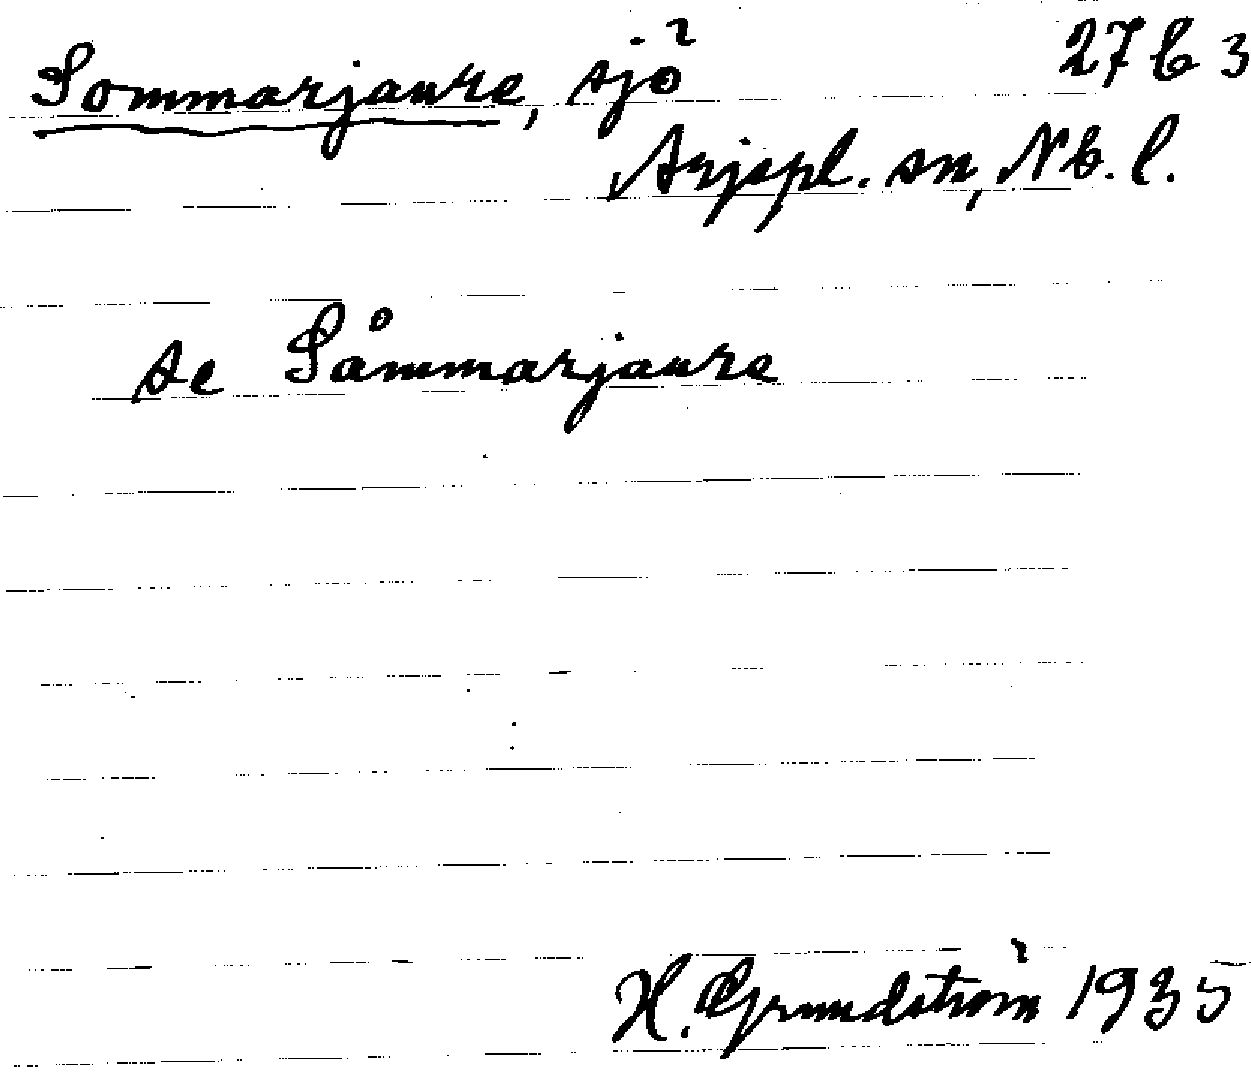 Sommarjaure, sjö 27 b 3
Arjepl. sn, Nb. l.
se Såmmarjaure
H. Grundström 1935